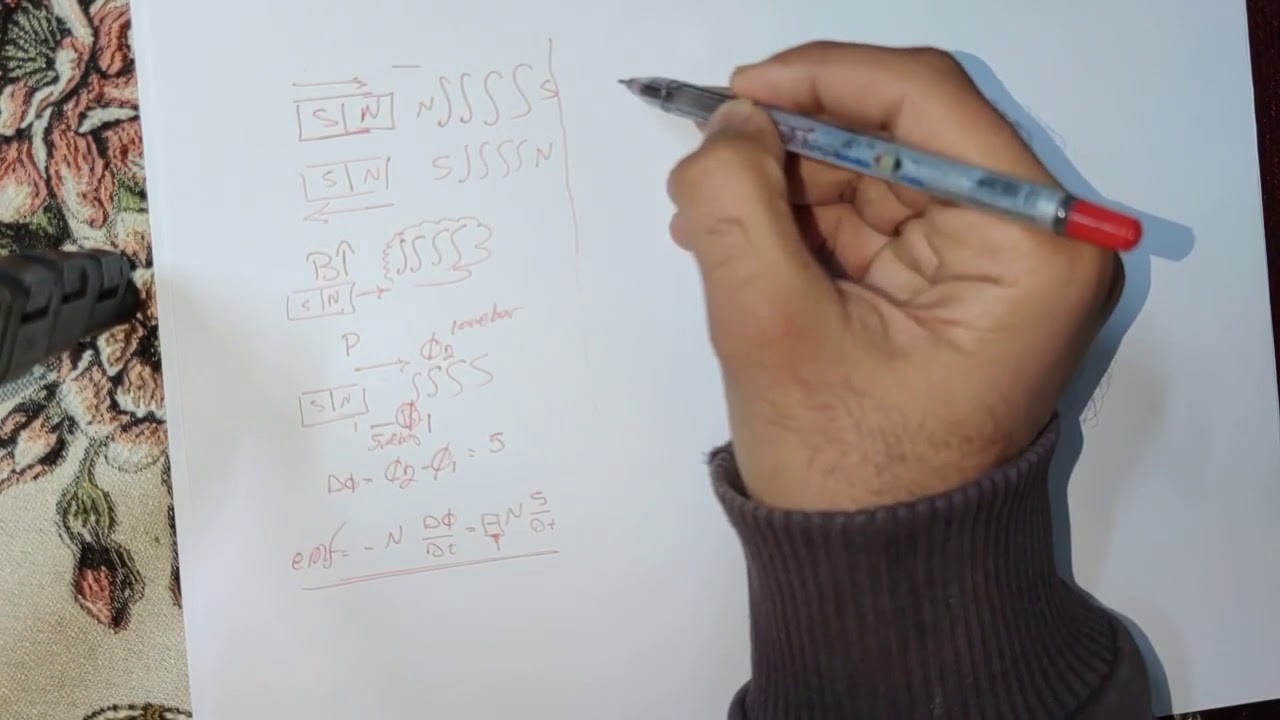 S N N S
S N S N
B↑
S N
P φ2 10weber
S N
φ1
5weber
Δφ = φ2 - φ1 = 5
emf = - N Δφ/Δt = - N 5/Δt